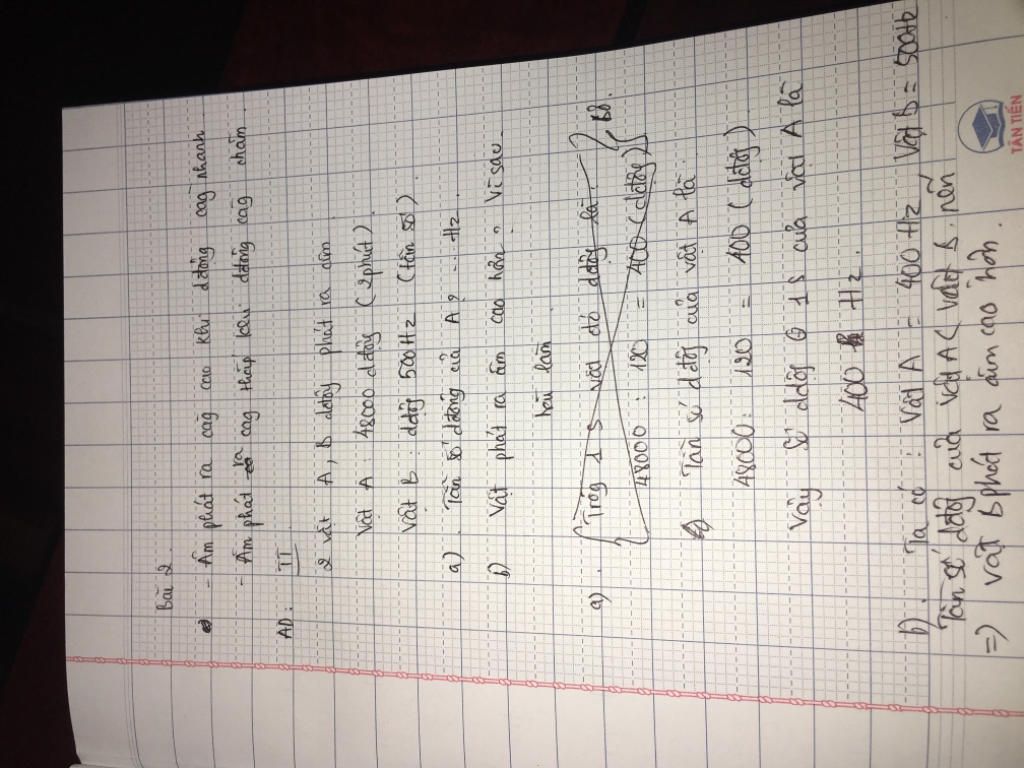 Bài 2.
- Âm phát ra càg cao khi dđộng càg nhanh
- Âm phát ra càg thấp khi dđộng càg chậm.
AD: TT
2 vật A, B dđộg phát ra âm
Vật A : 48000 dđộg (2phút)
Vật B : dđộg 500Hz (tần số)
a). Tần số dđộng của A? ... Hz.
b) Vật phát ra âm cao hơn? Vì sau.
bài làm
a). Trog 1 s vật đó dđộg là: Bỏ.
48000 : 120 = 400 (dđộg)
Tần số dđộg của vật A là
48000 : 120 = 400 (dđộg)
Vậy số dđộg 1s của vật A là
400 Hz.
b). Ta có : Vật A = 400 Hz, Vật B = 500Hz
Tần số dđộg của vật A < vật B. nên
=) vật B phát ra âm cao hơn.
TÂN TIẾN